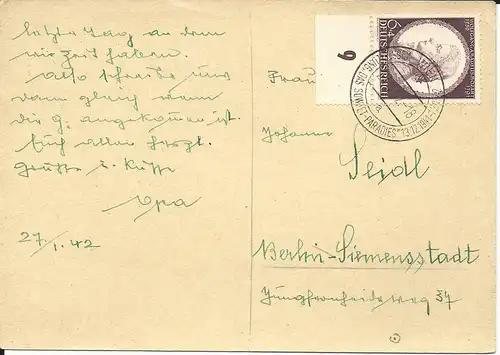 letzte Tag an dem
wir Zeit haben.
Also schreibe uns
dann gleich wenn
die G. angekommen ist.
Euch allen herzl.
Grüsse u. Küsse
Opa
27/1.42
6+4
DEUTSCHES REICH
6
WIEN
DAS SOWJET-PARADIES" 13.12.1941-
Frau
Johanna
Seidl
Berlin-Siemensstadt
Jungfernheideweg 37